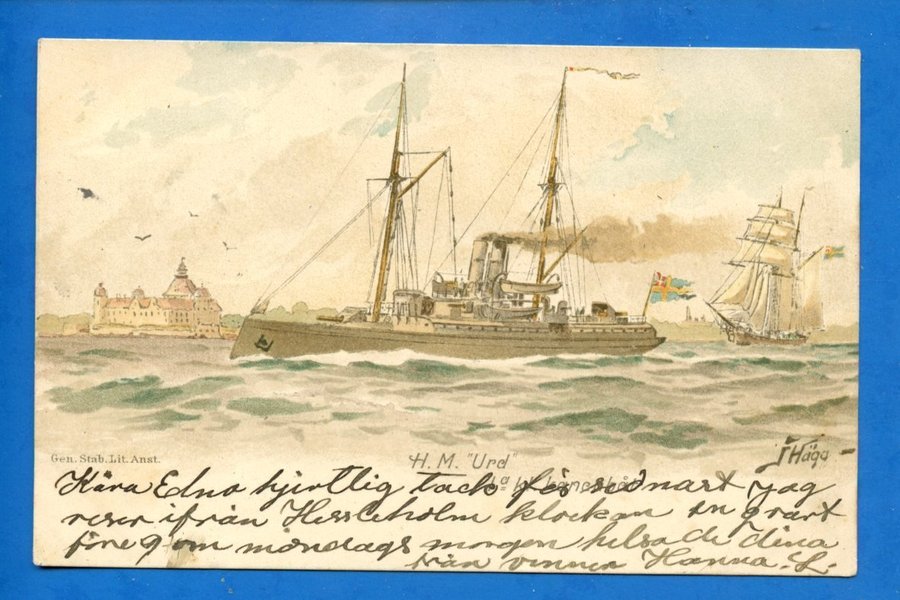 Gen. Stab. Lit. Anst.
H. M. "Urd"
J Häga
Kära Edna hjertlig tack för sednast jag
reser ifrån Hessleholm klockan en qvart
före 9 om måndags morgon helsa de dina
från vännen Hanna. L.